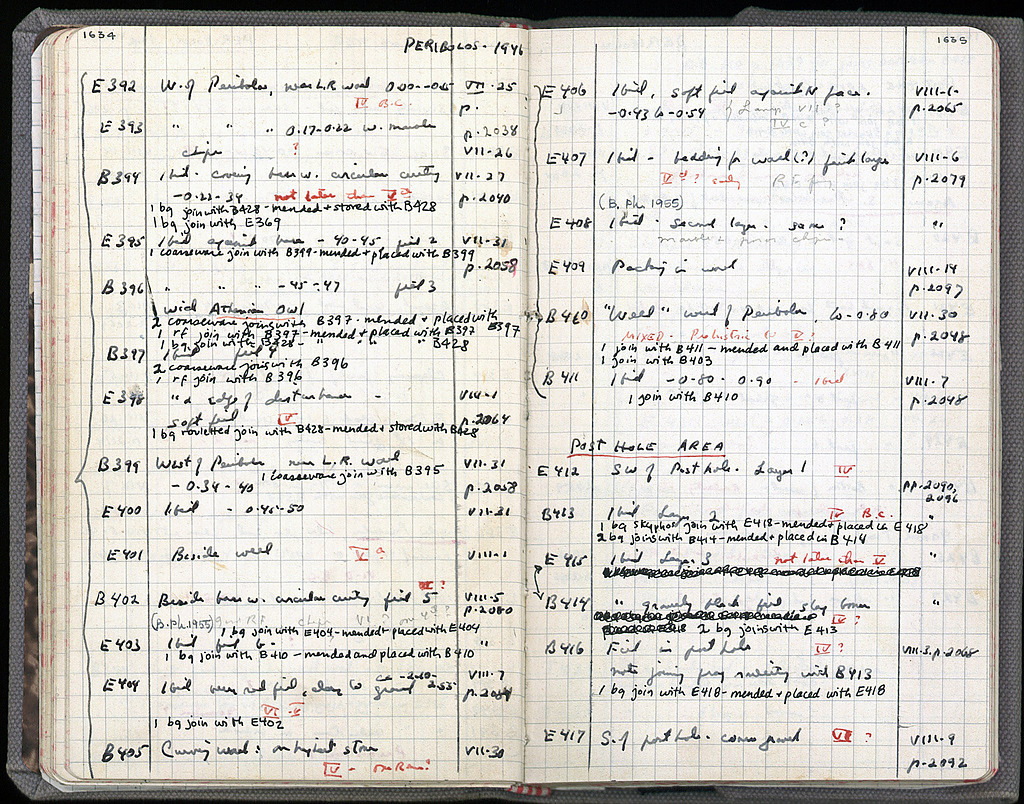 1634
PERIBOLOS - 1946
E 392 W. of Peribolos, near L.R. wall VII-25
IV B.C. p.
E 393 " " " 0.17-0.22 w. marble p.2038
chips ? VII-26
B 394 Ibid. curving base w. circular cutting VII-27
-0.22-.34 not later than V p.2040
1 bg join with B428-mended + stored with B428
1 bg join with E369
E 395 Ibid against base -40-45 fill 2 VII-31
1 coarseware join with B399-mended + placed with B399
p.2058
B 396 " " " -45-47 fill 3
with Athenian Owl
2 coarseware joins with B397-mended + placed with B397
1 rf join with B397-mended + placed with B397
1 bg join with B428- " " " " B428
B 397 Ibid fill 4
2 coarseware joins with B396
1 rf join with B396
E 398 " a edge of disturbance - VIII-1
soft fill IV p.2064
1 bg rouletted join with B428-mended + stored with B428
B 399 West of Peribolos near L.R. wall VII-31
1 coarseware join with B395
-0.34-40 p.2058
E 400 Ibid - 0.45-50 VII-31
E 401 Beside wall V ? VIII-1
B 402 Beside base w. circular cutting fill 5 VIII-5
p.2080
(B.Ph.1955)
1 bg join with E404-mended + placed with E404
E 403 Ibid fill 6 "
1 bg join with B410-mended and placed with B410
E 404 Ibid over red fill, clay to ground 2.55 VIII-7
p.2084
VI-V
1 bg join with E402
B 405 Curving wall: on highest stone VII-30
IV - one Rom?
1635
E 406 Ibid, soft fill against N face. VIII-1-
-0.43 to -0.54 p.2065
IV c ?
E 407 Ibid - bedding for wall (?) VIII-6
V ? early p.2079
(B.Ph. 1955)
E 408 Ibid - second layer. same ? "
E 409 Packing in wall VIII-14
p.2097
B 410 "Well" west of Peribolos, to -0.80 VII-30
MIXED - Prehistoric to V? p.2048
1 join with B411-mended and placed with B411
1 join with B403
B 411 Ibid -0.80-0.90 - Ibid VIII-7
1 join with B410 p.2048
POST HOLE AREA
E 412 SW of Post hole. Layer 1 IV
pp.2090,
2096
B 413 Ibid Layer 2 IV B.C. "
1 bg skyphos join with E418-mended + placed in E418
2 bg joins with B414-mended + placed in B414
E 415 Ibid Layer 3 not later than V "
B 414 " gravelly black fill slag bones "
IV ?
2 bg joins with E413
B 416 Fill in post hole IV ? VIII-3, p.2068
note joining frag with B413
1 bg join with E418-mended + placed with E418
E 417 S. of post hole - coarse gravel VI ? VIII-9
p.2092